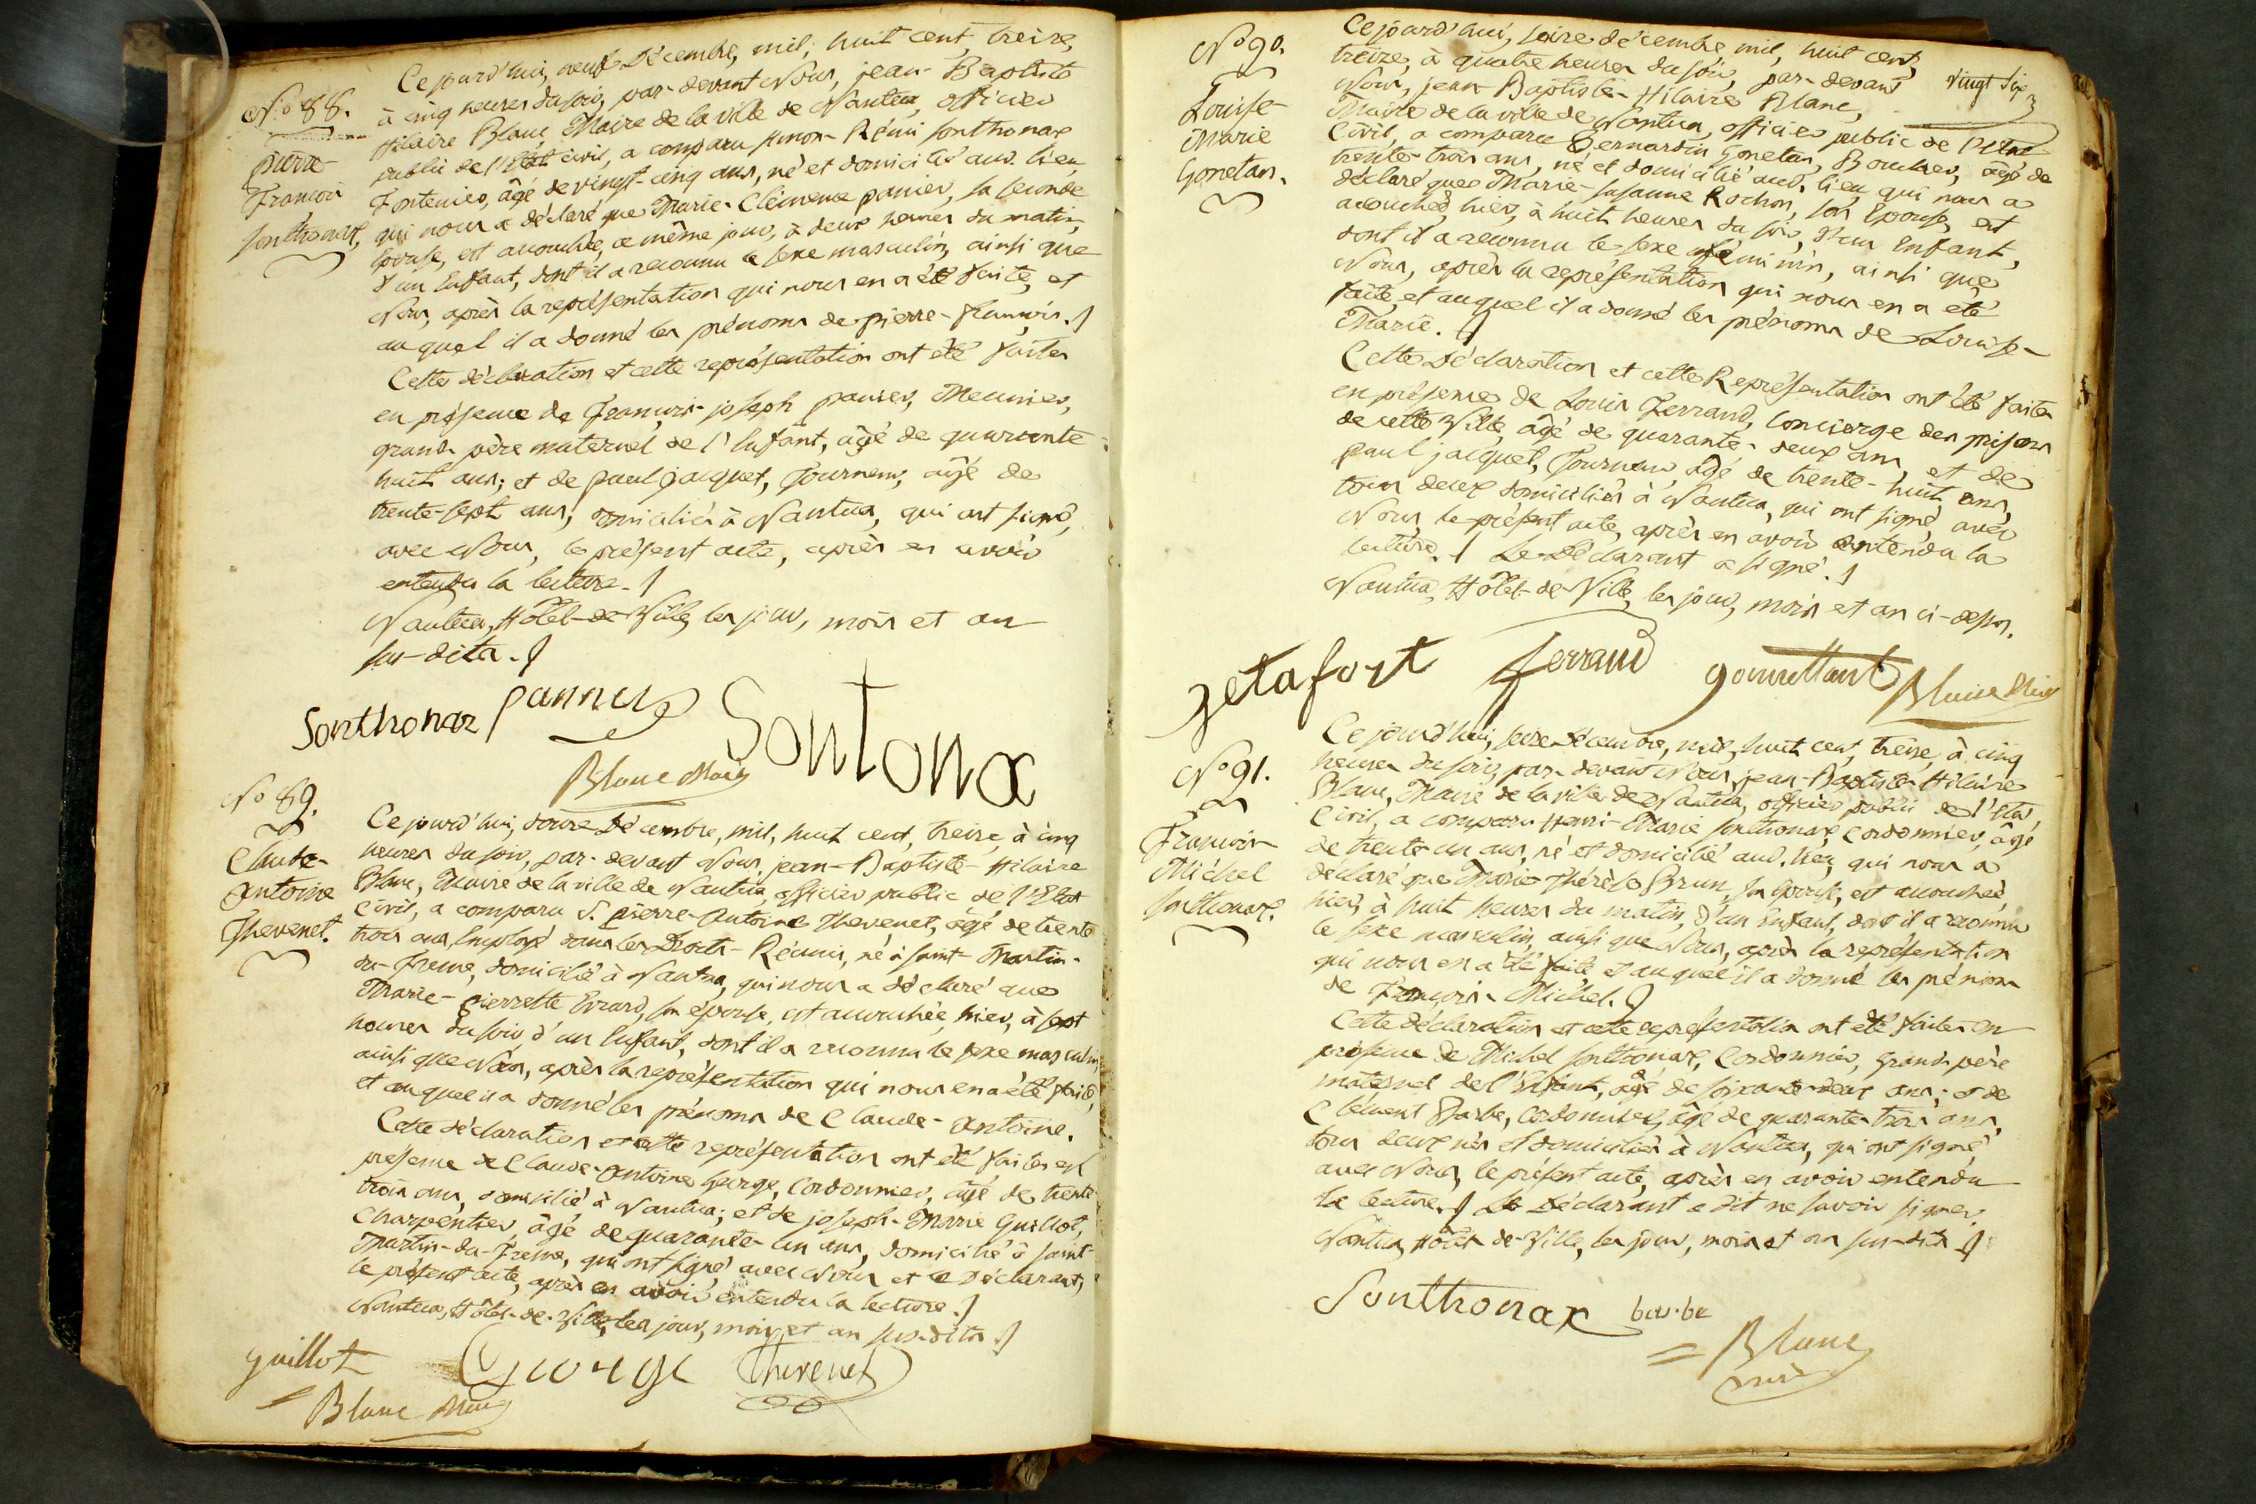 N.o 88.
pierre-
François
Sonthonax,
Ce jourd'hui, neuf Décembre, mil, huit cent, treize,
à cinq heures du soir, par-devant Nous, jean-Baptiste
Hilaire Blanc Maire de la ville de Nantua, officier
public de l'Etat civil, a comparu simon-Rémi Sonthonax
âgé de vingt-cinq ans, né et domicilié aud. lieu,
qui nous a déclaré que Marie-Clémence panier, sa seconde
épouse, est accouchée, ce même jour, à deux heures du matin,
d'un Enfant, dont il a reconnu le sexe masculin, ainsi que
Nous, après la représentation qui nous en a été faite, et
auquel il a donné les prénoms de pierre-françois.
Cette déclaration et cette représentation ont été faites
en présence de François-joseph panier, Meunier,
grand-père maternel de l'Enfant, âgé de quarante-
huit ans; et de paul jacquet, Tourneur, âgé de
trente-sept ans, domiciliés à Nantua, qui ont signé,
avec Nous, le présent acte, après en avoir
entendu la lecture.
Nantua, Hôtel-de-Ville, les jour, mois et an
sus-dits.
Sonthonax pannier Sontona
Blanc Maire
N.o 89.
Claude-
Antoine
Thevenet.
Ce jourd'hui, douze Décembre, mil, huit cent, treize, à cinq
heures du soir, par-devant Nous, jean-Baptiste-Hilaire
Blanc, Maire de la ville de Nantua, officier public de l'Etat
Civil, a comparu S. pierre-Antoine Thevenet, âgé de trente
trois ans, Employé dans les Droits-Réunis, né à Saint-Martin-
du-Frene, domicilié à Nantua, qui nous a déclaré que
Marie-pierrette Evrard, son épouse, est accouchée, hier, à sept
heures du soir, d'un Enfant, dont il a reconnu le sexe masculin,
ainsi que Nous, après la représentation qui nous en a été faite,
et auquel il a donné les prénoms de Claude-Antoine.
Cette déclaration et cette représentation ont été faites en
présence de Claude-Antoine George, Cordonnier, âgé de trente
trois ans, domicilié à Nantua; et de joseph-Marie Guillot,
Charpentier, âgé de quarante-un ans, domicilié à Saint-
Martin-du-Frene, qui ont signé avec Nous et le Déclarant,
le présent acte, après en avoir entendu la lecture.
Nantua, Hôtel-de-Ville, les jour, mois et an sus-dits.
guillot George Thevenet
Blanc Maire
vingt six
N.o 90.
Louise-
Marie
Gonetan.
Ce jourd'hui, seize décembre mil, huit cent,
treize, à quatre heures du soir, par-devant
Nous, jean-Baptiste-Hilaire Blanc,
Maire de la ville de Nantua, officier public de l'Etat
Civil, a comparu Bernardin Gonetan, Boucher, âgé de
trente-trois ans, né et domicilié aud. lieu, qui nous a
déclaré que Marie-Susanne Rochon, son Epouse, est
accouchée, hier, à huit heures du soir, d'un Enfant,
dont il a reconnu le sexe féminin, ainsi que
Nous, après la représentation qui nous en a été
faite, et auquel il a donné les prénoms de Louise-
Marie.
Cette Déclaration et cette Représentation ont été faites
en présence de Louis Ferrand, Concierge des prisons
de cette Ville, âgé de quarante-deux ans, et de
paul jacquet, Tourneur, âgé de trente-huit ans,
tous deux domiciliés à Nantua, qui ont signé, avec
Nous, le présent acte, après en avoir entendu la
lecture. Le Déclarant a signé.
Nantua, Hôtel-de-Ville, les jour, mois et an ci-dessus.
ferrand gonnettant Blanc Maire
N.o 91.
François-
Michel
Sonthonax.
Ce jourd'hui, seize Décembre, mil, huit cent, treize, à cinq
heures du soir, par-devant Nous, jean-Baptiste-Hilaire
Blanc, Maire de la ville de Nantua, officier public de l'Etat
Civil, a comparu Henri-Marie Sonthonax, Cordonnier, âgé
de trente-un ans, né et domicilié aud. lieu, qui nous a
déclaré que Marie Thérèse Brun, son épouse, est accouchée,
hier, à huit heures du matin, d'un Enfant, dont il a reconnu
le sexe masculin, ainsi que Nous, après la représentation
qui nous en a été faite et auquel il a donné les prénoms
de François-Michel.
Cette déclaration et cette représentation ont été faites en
présence de Michel Sonthonax, Cordonnier, grand-père
maternel de l'Enfant, âgé de soixante-deux ans; et de
Clément Barbe, Cordonnier, âgé de quarante-trois ans,
tous deux nés et domiciliés à Nantua, qui ont signé
avec Nous, le présent acte, après en avoir entendu
la lecture. Le Déclarant a dit ne savoir signer.
Nantua, Hôtel-de-Ville, les jour, mois et an sus-dits.
Sonthonax barbe
Blanc